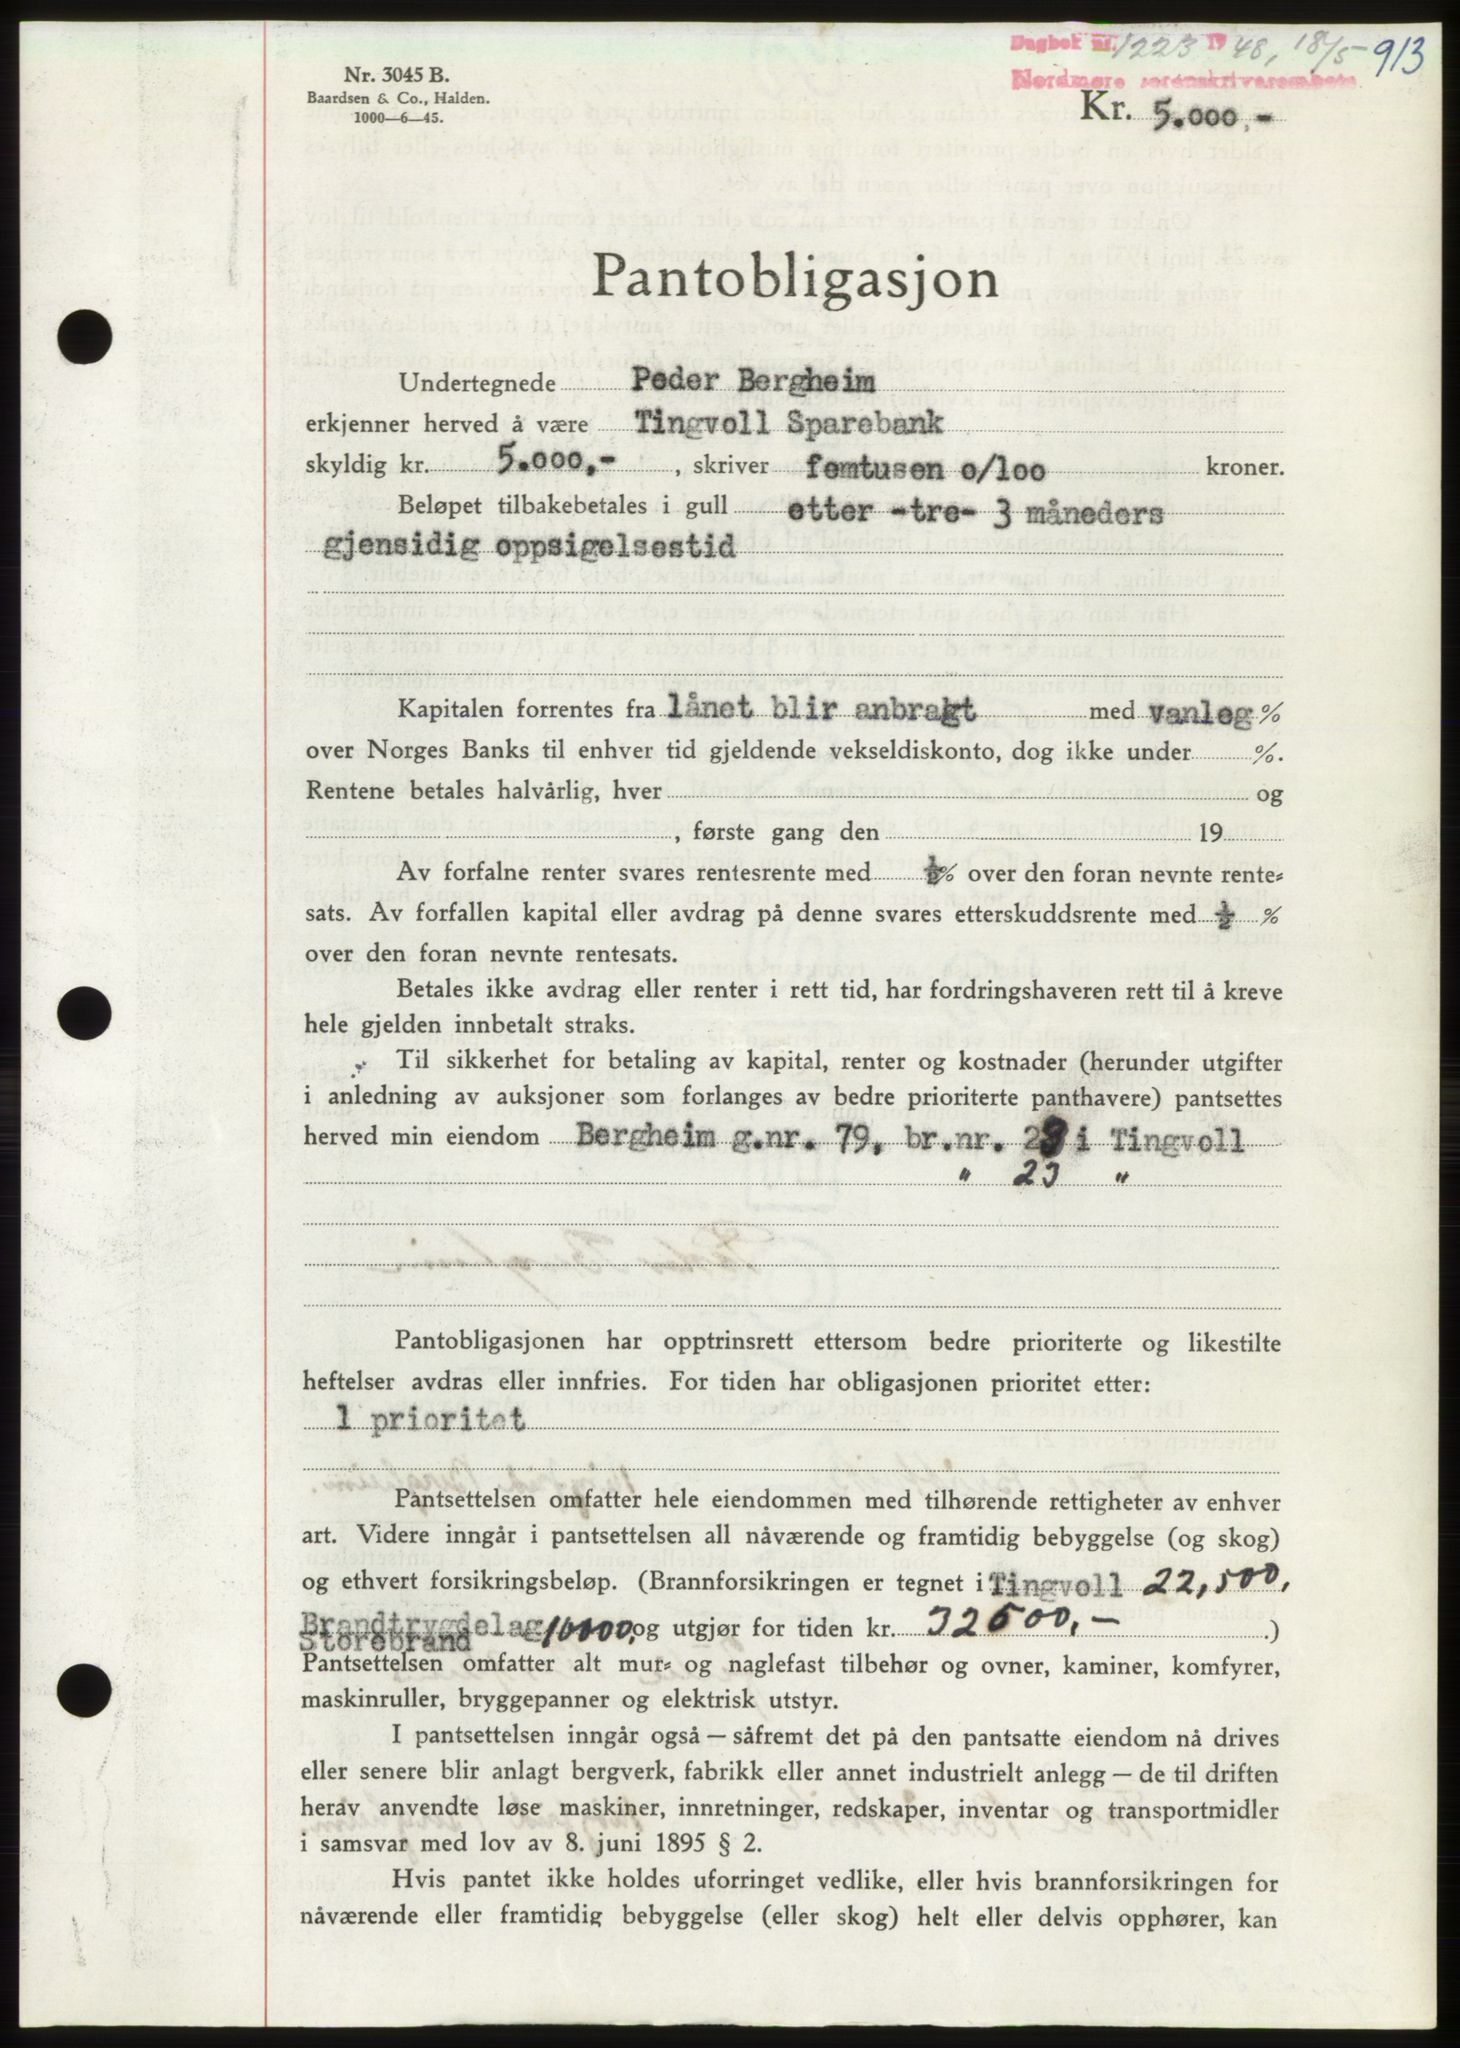 Dagbok nr. 1223 19 48, 18/5 913
Nordmøre sorenskriverembete
Nr. 3045 B.
Baardsen & Co., Halden.
1000—6—45.
Kr. 5.000,-
Pantobligasjon
Undertegnede Peder Bergheim
erkjenner herved å være Tingvoll Sparebank
skyldig kr. 5.000,- , skriver femtusen o/loo kroner.
Beløpet tilbakebetales i gull etter -tre- 3 måneders
gjensidig oppsigelsestid
Kapitalen forrentes fra lånet blir anbragt med vanleg %
over Norges Banks til enhver tid gjeldende vekseldiskonto, dog ikke under %.
Rentene betales halvårlig, hver og
, første gang den 19
Av forfalne renter svares rentesrente med ½% over den foran nevnte rente-
sats. Av forfallen kapital eller avdrag på denne svares etterskuddsrente med ½ %
over den foran nevnte rentesats.
Betales ikke avdrag eller renter i rett tid, har fordringshaveren rett til å kreve
hele gjelden innbetalt straks.
Til sikkerhet for betaling av kapital, renter og kostnader (herunder utgifter
i anledning av auksjoner som forlanges av bedre prioriterte panthavere) pantsettes
herved min eiendom Bergheim g.nr. 79, br.nr. 23 i Tingvoll
" 23 "
Pantobligasjonen har opptrinsrett ettersom bedre prioriterte og likestilte
heftelser avdras eller innfries. For tiden har obligasjonen prioritet etter:
1 prioritet
Pantsettelsen omfatter hele eiendommen med tilhørende rettigheter av enhver
art. Videre inngår i pantsettelsen all nåværende og framtidig bebyggelse (og skog)
og ethvert forsikringsbeløp. (Brannforsikringen er tegnet i Tingvoll 22,500,
Brandtrygdelag
Storebrand 10000, og utgjør for tiden kr. 32500,- .)
Pantsettelsen omfatter alt mur- og naglefast tilbehør og ovner, kaminer, komfyrer,
maskinruller, bryggepanner og elektrisk utstyr.
I pantsettelsen inngår også — såfremt det på den pantsatte eiendom nå drives
eller senere blir anlagt bergverk, fabrikk eller annet industrielt anlegg — de til driften
herav anvendte løse maskiner, innretninger, redskaper, inventar og transportmidler
i samsvar med lov av 8. juni 1895 § 2.
Hvis pantet ikke holdes uforringet vedlike, eller hvis brannforsikringen for
nåværende eller framtidig bebyggelse (eller skog) helt eller delvis opphører, kan